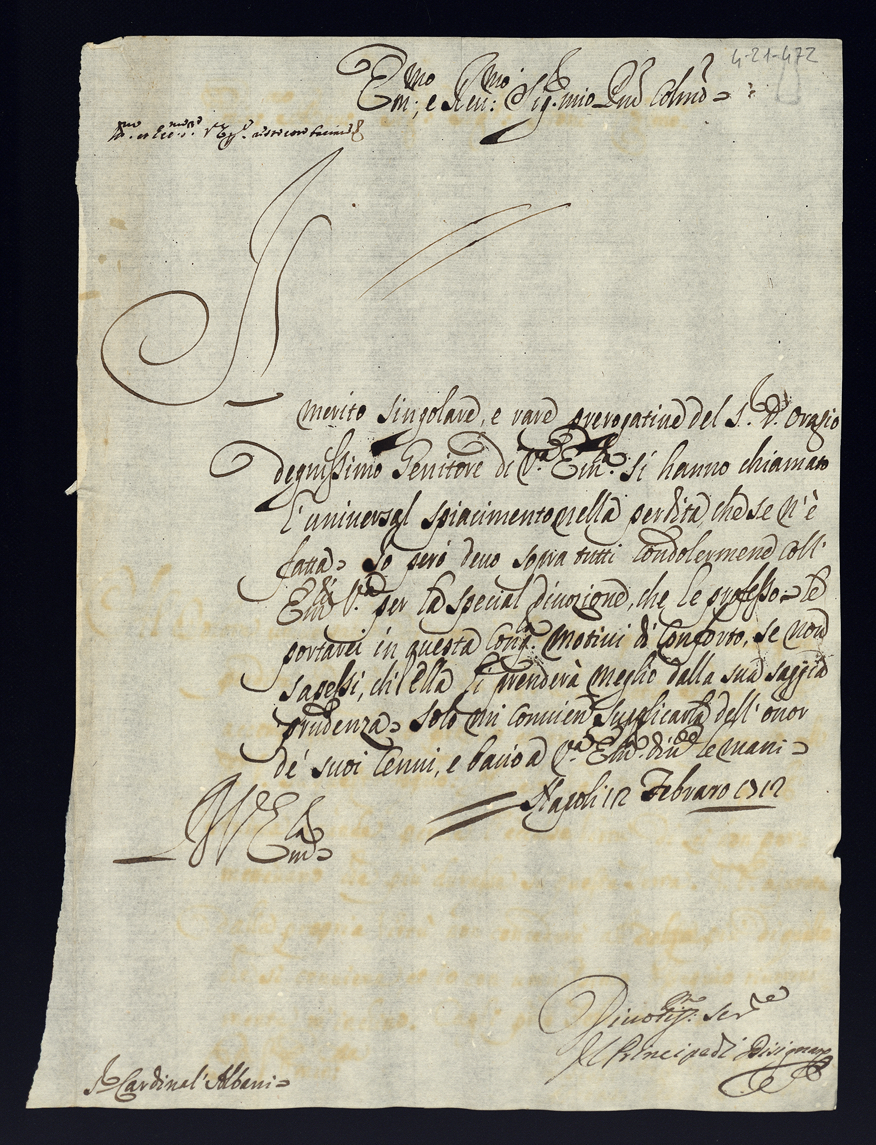 4-21-472
Em:mo e Reu:mo Sig:r mio P'ne Colmo
Il
merito singolare, e rare prerogatiue del S.r D. Orazio
degnissimo Genitore di V.a Em.a si hanno chiamato
l'uniuersal spiacimento nella perdita che se n'è
fatta. Io però deuo sopra tutti condolermene coll'
Em.a V.a per la special diuozione, che le professo. Le
portarei in questa Cong.a motiui di Conforto, se non
sapessi, ch'ella li prenderà meglio dalla sua saggia
prudenza. Solo mi conuien supplicarla dell'onor
de' suoi Cenni, e bacio a V.a Em.a diu.te le mani
Napoli 12 Febraro 1712
D V.E
Em.a
Diuotiss:mo Ser.re
Il Principe di Bisignano
S.r Cardinal' Albani